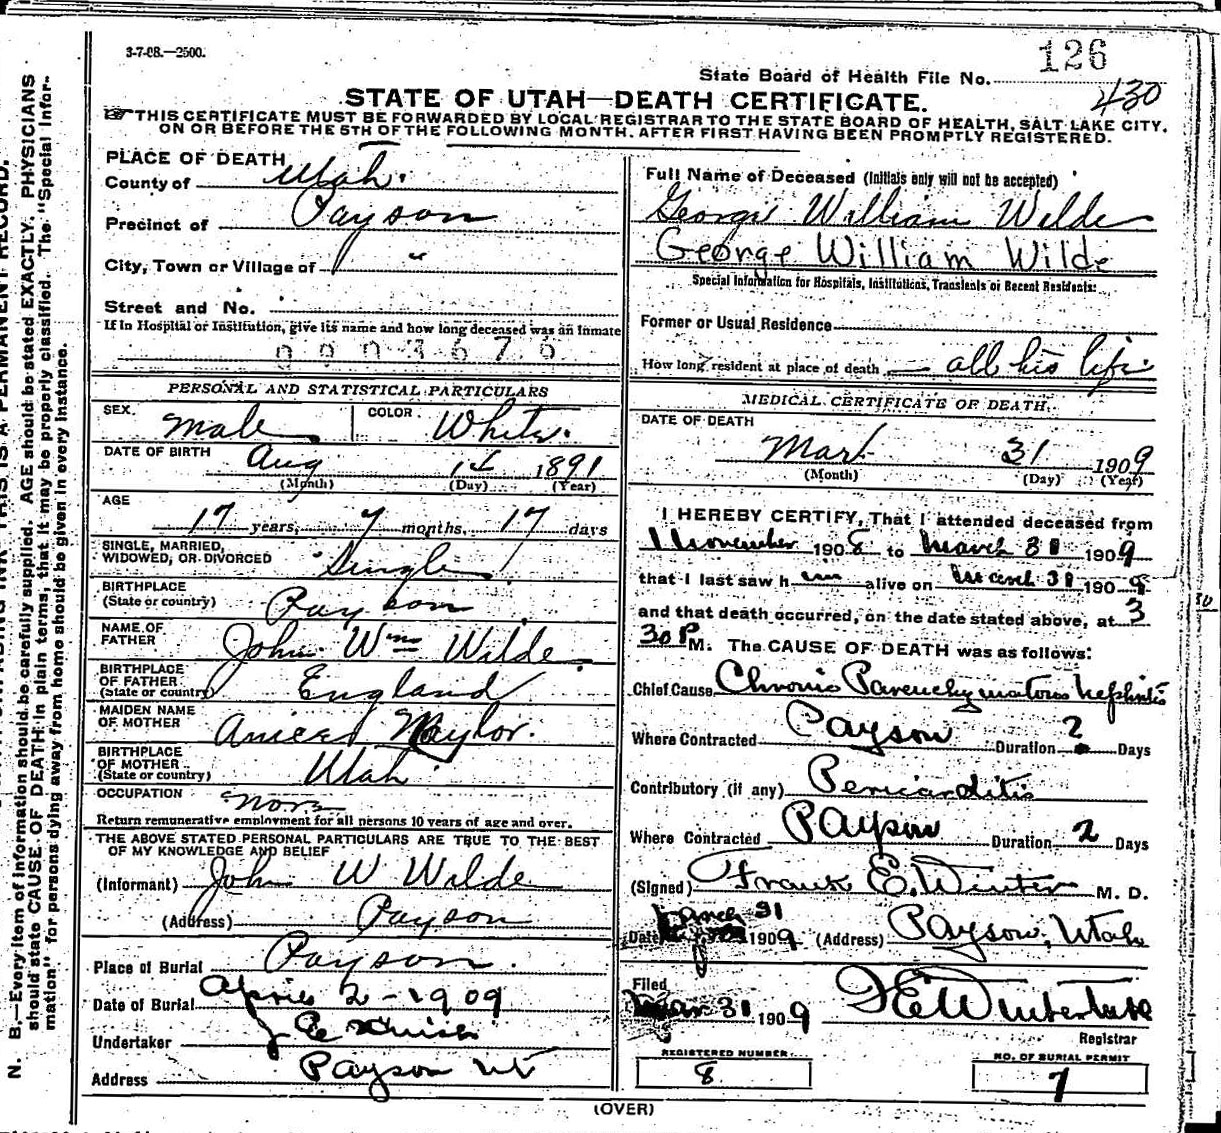 3-7-08.—2500.
126
State Board of Health File No.
430
STATE OF UTAH—DEATH CERTIFICATE.
THIS CERTIFICATE MUST BE FORWARDED BY LOCAL REGISTRAR TO THE STATE BOARD OF HEALTH, SALT LAKE CITY,
ON OR BEFORE THE 5TH OF THE FOLLOWING MONTH. AFTER FIRST HAVING BEEN PROMPTLY REGISTERED.
PLACE OF DEATH
County of Utah.
Precinct of Payson
City, Town or Village of "
Street and No.
If in Hospital or Institution, give its name and how long deceased was an inmate
PERSONAL AND STATISTICAL PARTICULARS
SEX. Male COLOR White.
DATE OF BIRTH Aug 14 1891
(Month) (Day) (Year)
AGE
17 years, 7 months, 17 days
SINGLE, MARRIED,
WIDOWED, OR DIVORCED Single
BIRTHPLACE
(State or country) Payson
NAME OF
FATHER John Wm Wilde
BIRTHPLACE
OF FATHER
(State or country) England
MAIDEN NAME
OF MOTHER Naylor.
BIRTHPLACE
OF MOTHER
(State or country) Utah
OCCUPATION
Return remunerative employment for all persons 10 years of age and over.
THE ABOVE STATED PERSONAL PARTICULARS ARE TRUE TO THE BEST
OF MY KNOWLEDGE AND BELIEF
(Informant) John W Wilde
(Address) Payson
Place of Burial Payson.
Date of Burial April 2-1909
Undertaker
Address Payson Ut
Full Name of Deceased (Initials only will not be accepted)
George William Wilde
George William Wilde
Special Information for Hospitals, Institutions, Transients or Recent Residents:
Former or Usual Residence
How long resident at place of death all his life
MEDICAL CERTIFICATE OF DEATH.
DATE OF DEATH
Mar 31 1909
(Month) (Day) (Year)
I HEREBY CERTIFY, That I attended deceased from
1 November 1908 to March 31 1909
that I last saw him alive on March 31 1909
and that death occurred, on the date stated above, at 3
30 P M. The CAUSE OF DEATH was as follows:
Chief Cause Chronic Parenchymatous Nephritis
Where Contracted Payson Duration 2 Days
Contributory (if any) Pericarditis
Where Contracted Payson Duration 2 Days
(Signed) Frank E. Winter M. D.
Date March 31 1909 (Address) Payson, Utah
Filed
Mar 31 1909
Registrar
REGISTERED NUMBER
8
NO. OF BURIAL PERMIT
7
(OVER)
N. B.—Every item of information should be carefully supplied. AGE should be stated EXACTLY. PHYSICIANS
should state CAUSE OF DEATH in plain terms, that it may be properly classified. The "Special Infor-
mation" for persons dying away from home should be given in every instance.